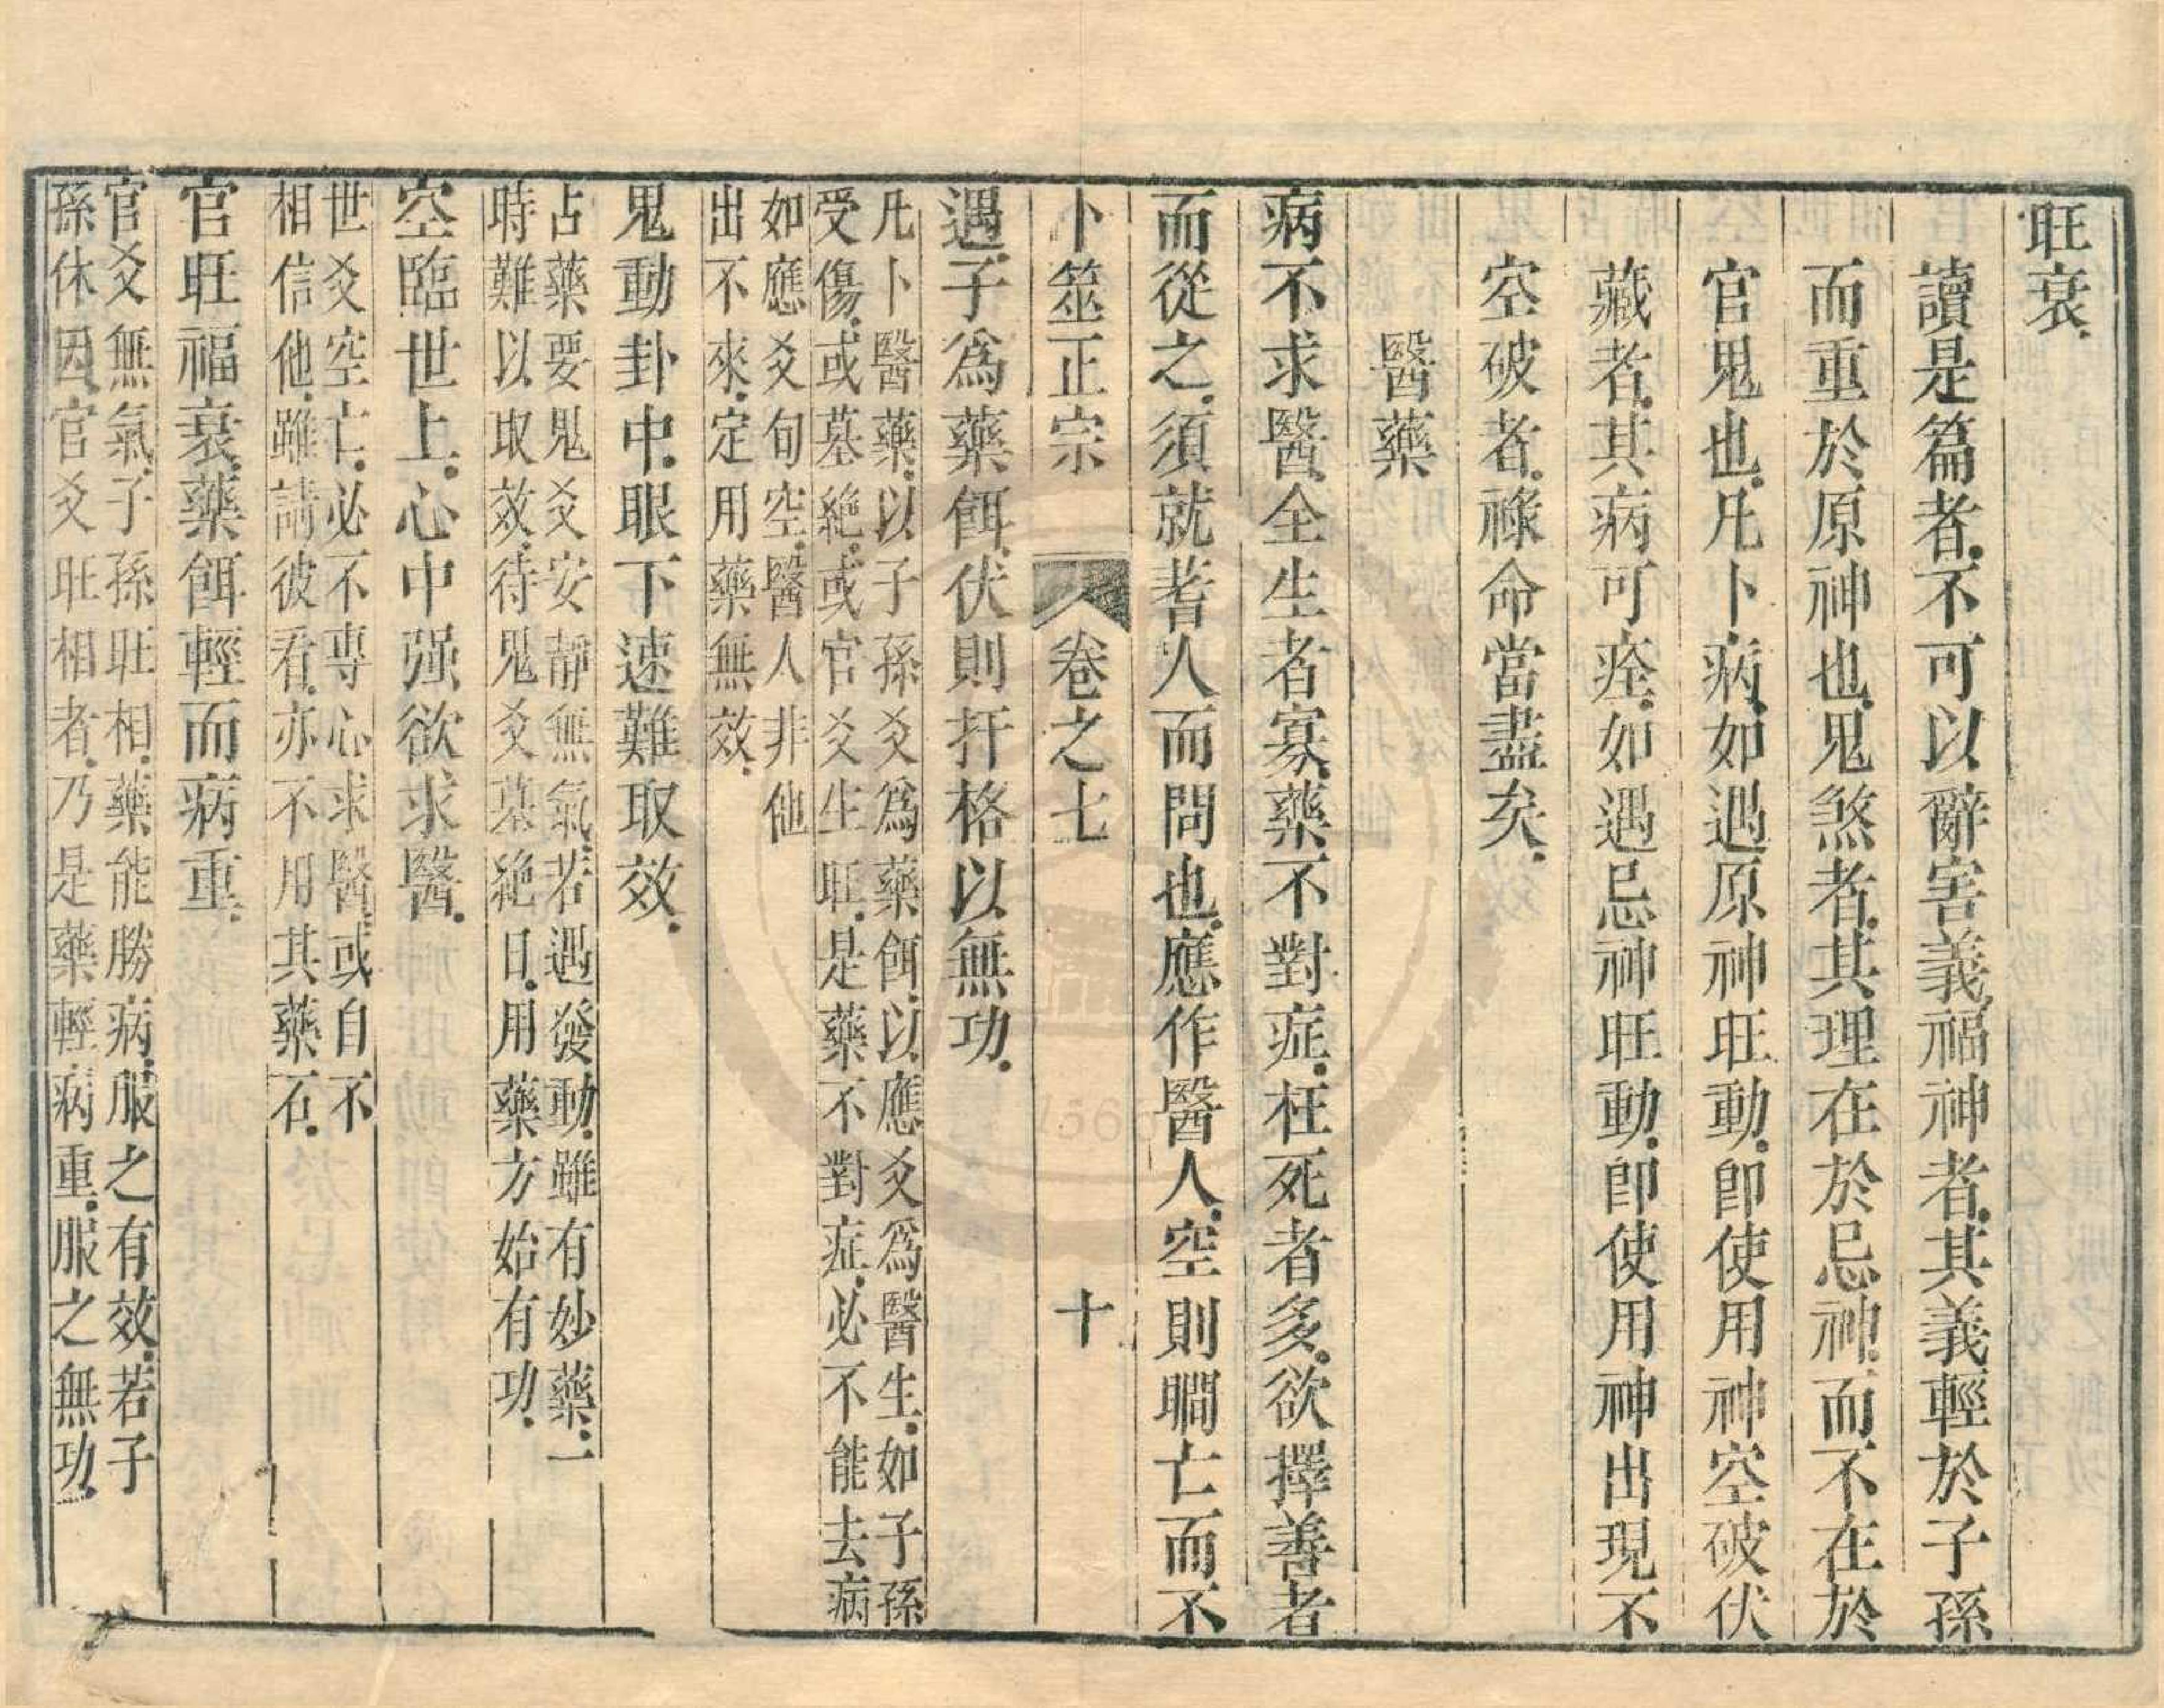 旺衰.
讀是篇者.不可以辭害義.福神者.其義輕於子孫
而重於原神也.鬼煞者.其理在於忌神.而不在於
官鬼也.凡卜病.如遇原神旺動.即使用神空破伏
藏者.其病可痊.如遇忌神旺動.即使用神出現不
空破者.祿命當盡矣.
醫藥
病不求醫.全生者寡.藥不對症.枉死者多.欲擇善者
而從之.須就蓍人而問也.應作醫人.空則瞷亡而不
卜筮正宗 卷之七 十
遇.子爲藥餌.伏則扞格以無功.
凡卜醫藥.以子孫爻爲藥餌.以應爻爲醫生.如子孫
受傷.或墓絕.或官爻生旺.是藥不對症.必不能去病
如應爻旬空.醫人非他
出不來.定用藥無效.
鬼動卦中.眼下速難取效.
占藥要鬼爻安靜無氣.若遇發動.雖有妙藥.一
時難以取效.待鬼爻墓絕日.用藥方始有功.
空臨世上.心中强欲求醫.
世爻空亡.必不專心求醫.或自不
相信他.雖請彼看.亦不用其藥石.
官旺福衰.藥餌輕而病重.
官爻無氣.子孫旺相.藥能勝病.服之有效.若子
孫休囚.官爻旺相者.乃是藥輕病重.服之無功.